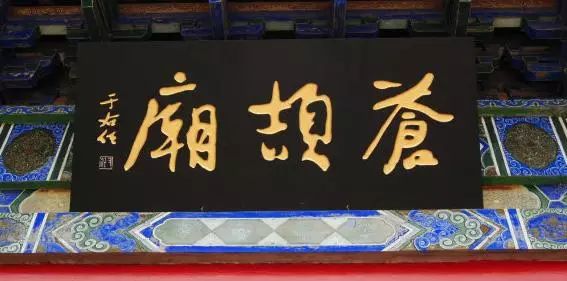 蒼頡廟
于右任